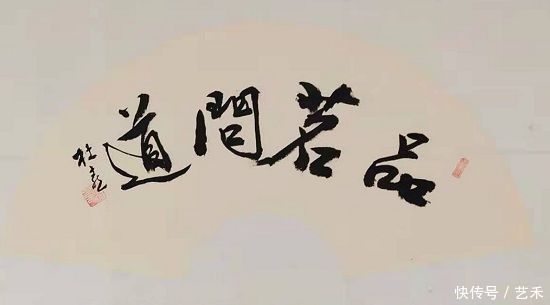 品茗問道
快传号/艺禾